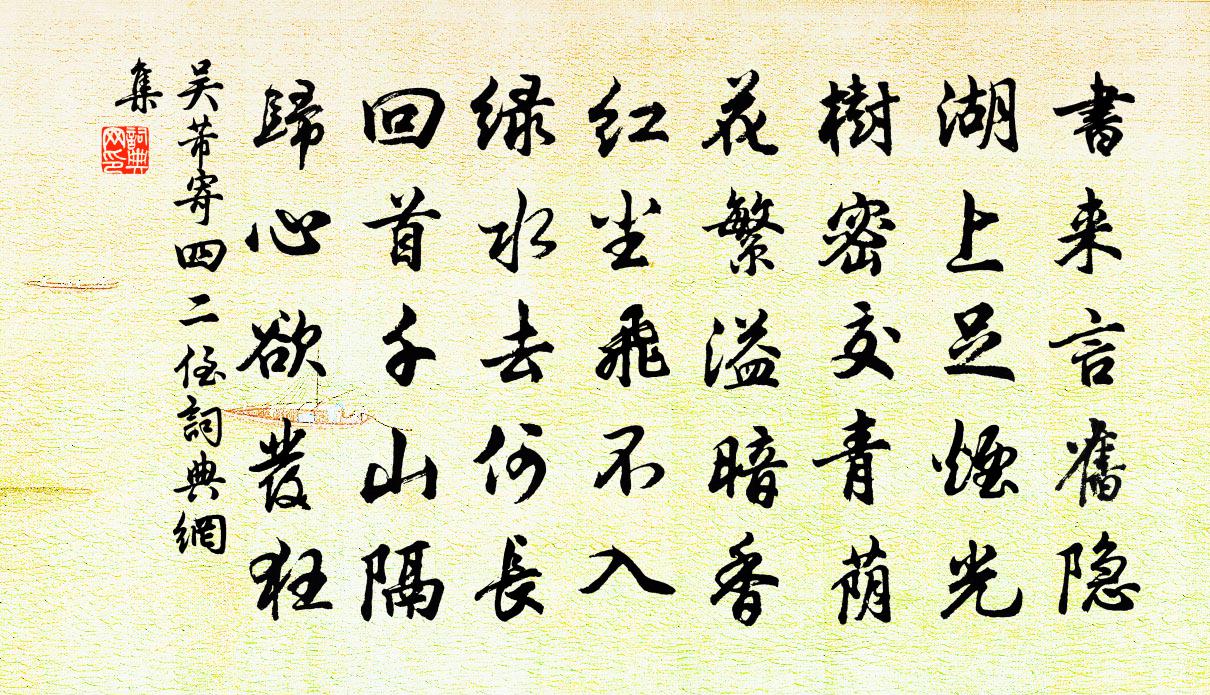 書来言舊隐
湖上足煙光
樹密交青荫
花繁溢暗香
红尘飛不入
绿水去何長
回首千山隔
歸心欲發狂
吴芾寄四二侄詞典網
集
詞典
网印